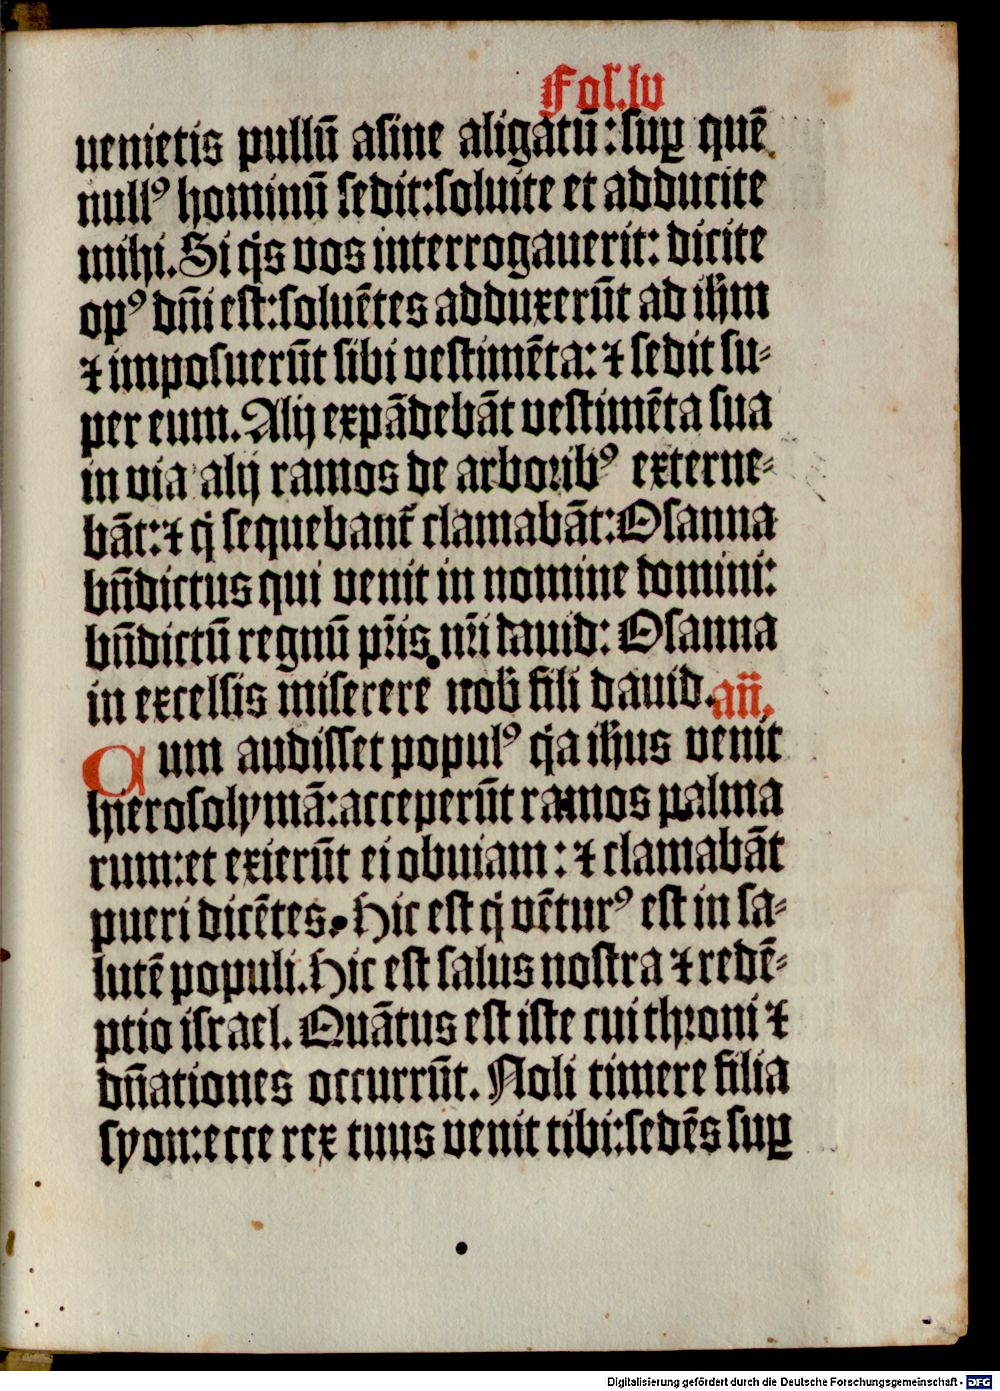 Fol.lv
uenietis pullū asine aligatū: suꝑ quē
nullꝰ hominū sedit: soluite et adducite
mihi. Si q̄s vos interrogauerit: dicite
opꝰ dn̄i est: soluētes adduxerūt ad ih̄m
⁊ imposuerūt sibi vestimēta: ⁊ sedit su⸗
per eum. Alij expādebāt vestimēta sua
in via alij ramos de arboribꝰ externe⸗
bāt: ⁊ q̄ sequebant᷑ clamabāt: Osanna
bn̄dictus qui venit in nomine domini:
bn̄dictū regnū pr̄is nr̄i dauid: Osanna
in excelsis miserere nob̄ fili dauid. an̄.
Cum audisset populꝰ q̄a ih̄us venit
hierosolymā: acceperūt ramos palma
rum: et exierūt ei obuiam: ⁊ clamabāt
pueri dicētes. Hic est q̄ vēturꝰ est in sa⸗
lutē populi. Hic est salus nostra ⁊ redē⸗
ptio israel. Quātus est iste cui throni ⁊
dn̄ationes occurrūt. Noli timere filia
syon: ecce rex tuus venit tibi: sedēs suꝑ
Digitalisierung gefördert durch die Deutsche Forschungsgemeinschaft - DFG